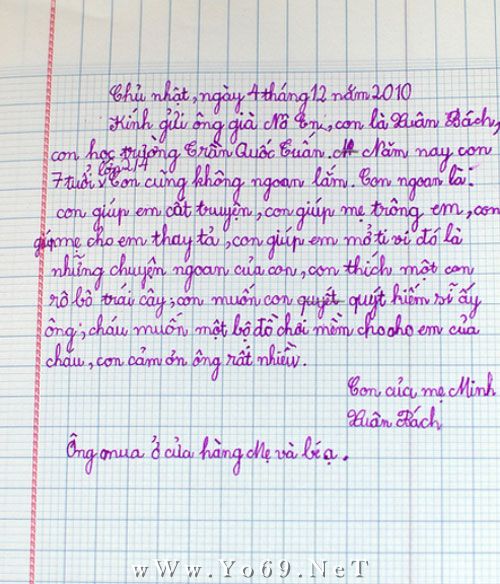 Chủ nhật, ngày 4 tháng 12 năm 2010
Kính gửi ông già Nô En, con là Xuân Bách,
con học trường Trần Quốc Tuấn. Năm nay con
lớp 2/4
7 tuổi, Con cũng không ngoan lắm. Con ngoan là:
con giúp em cất truyện, con giúp mẹ trông em, con
giúp mẹ cho em thay tả, con giúp em mở ti vi đó là
những chuyện ngoan của con, con thích một con
rô bô trái cây; con muốn con quyét quýt hiếm sĩ ấy
ông; cháu muốn một bộ đồ chơi mềm cho cho em của
cháu, con cảm ơn ông rất nhiều.
Con của mẹ Minh
Xuân Bách
Ông mua ở cửa hàng Mẹ và bé ạ.
wWw.Yo69.NeT